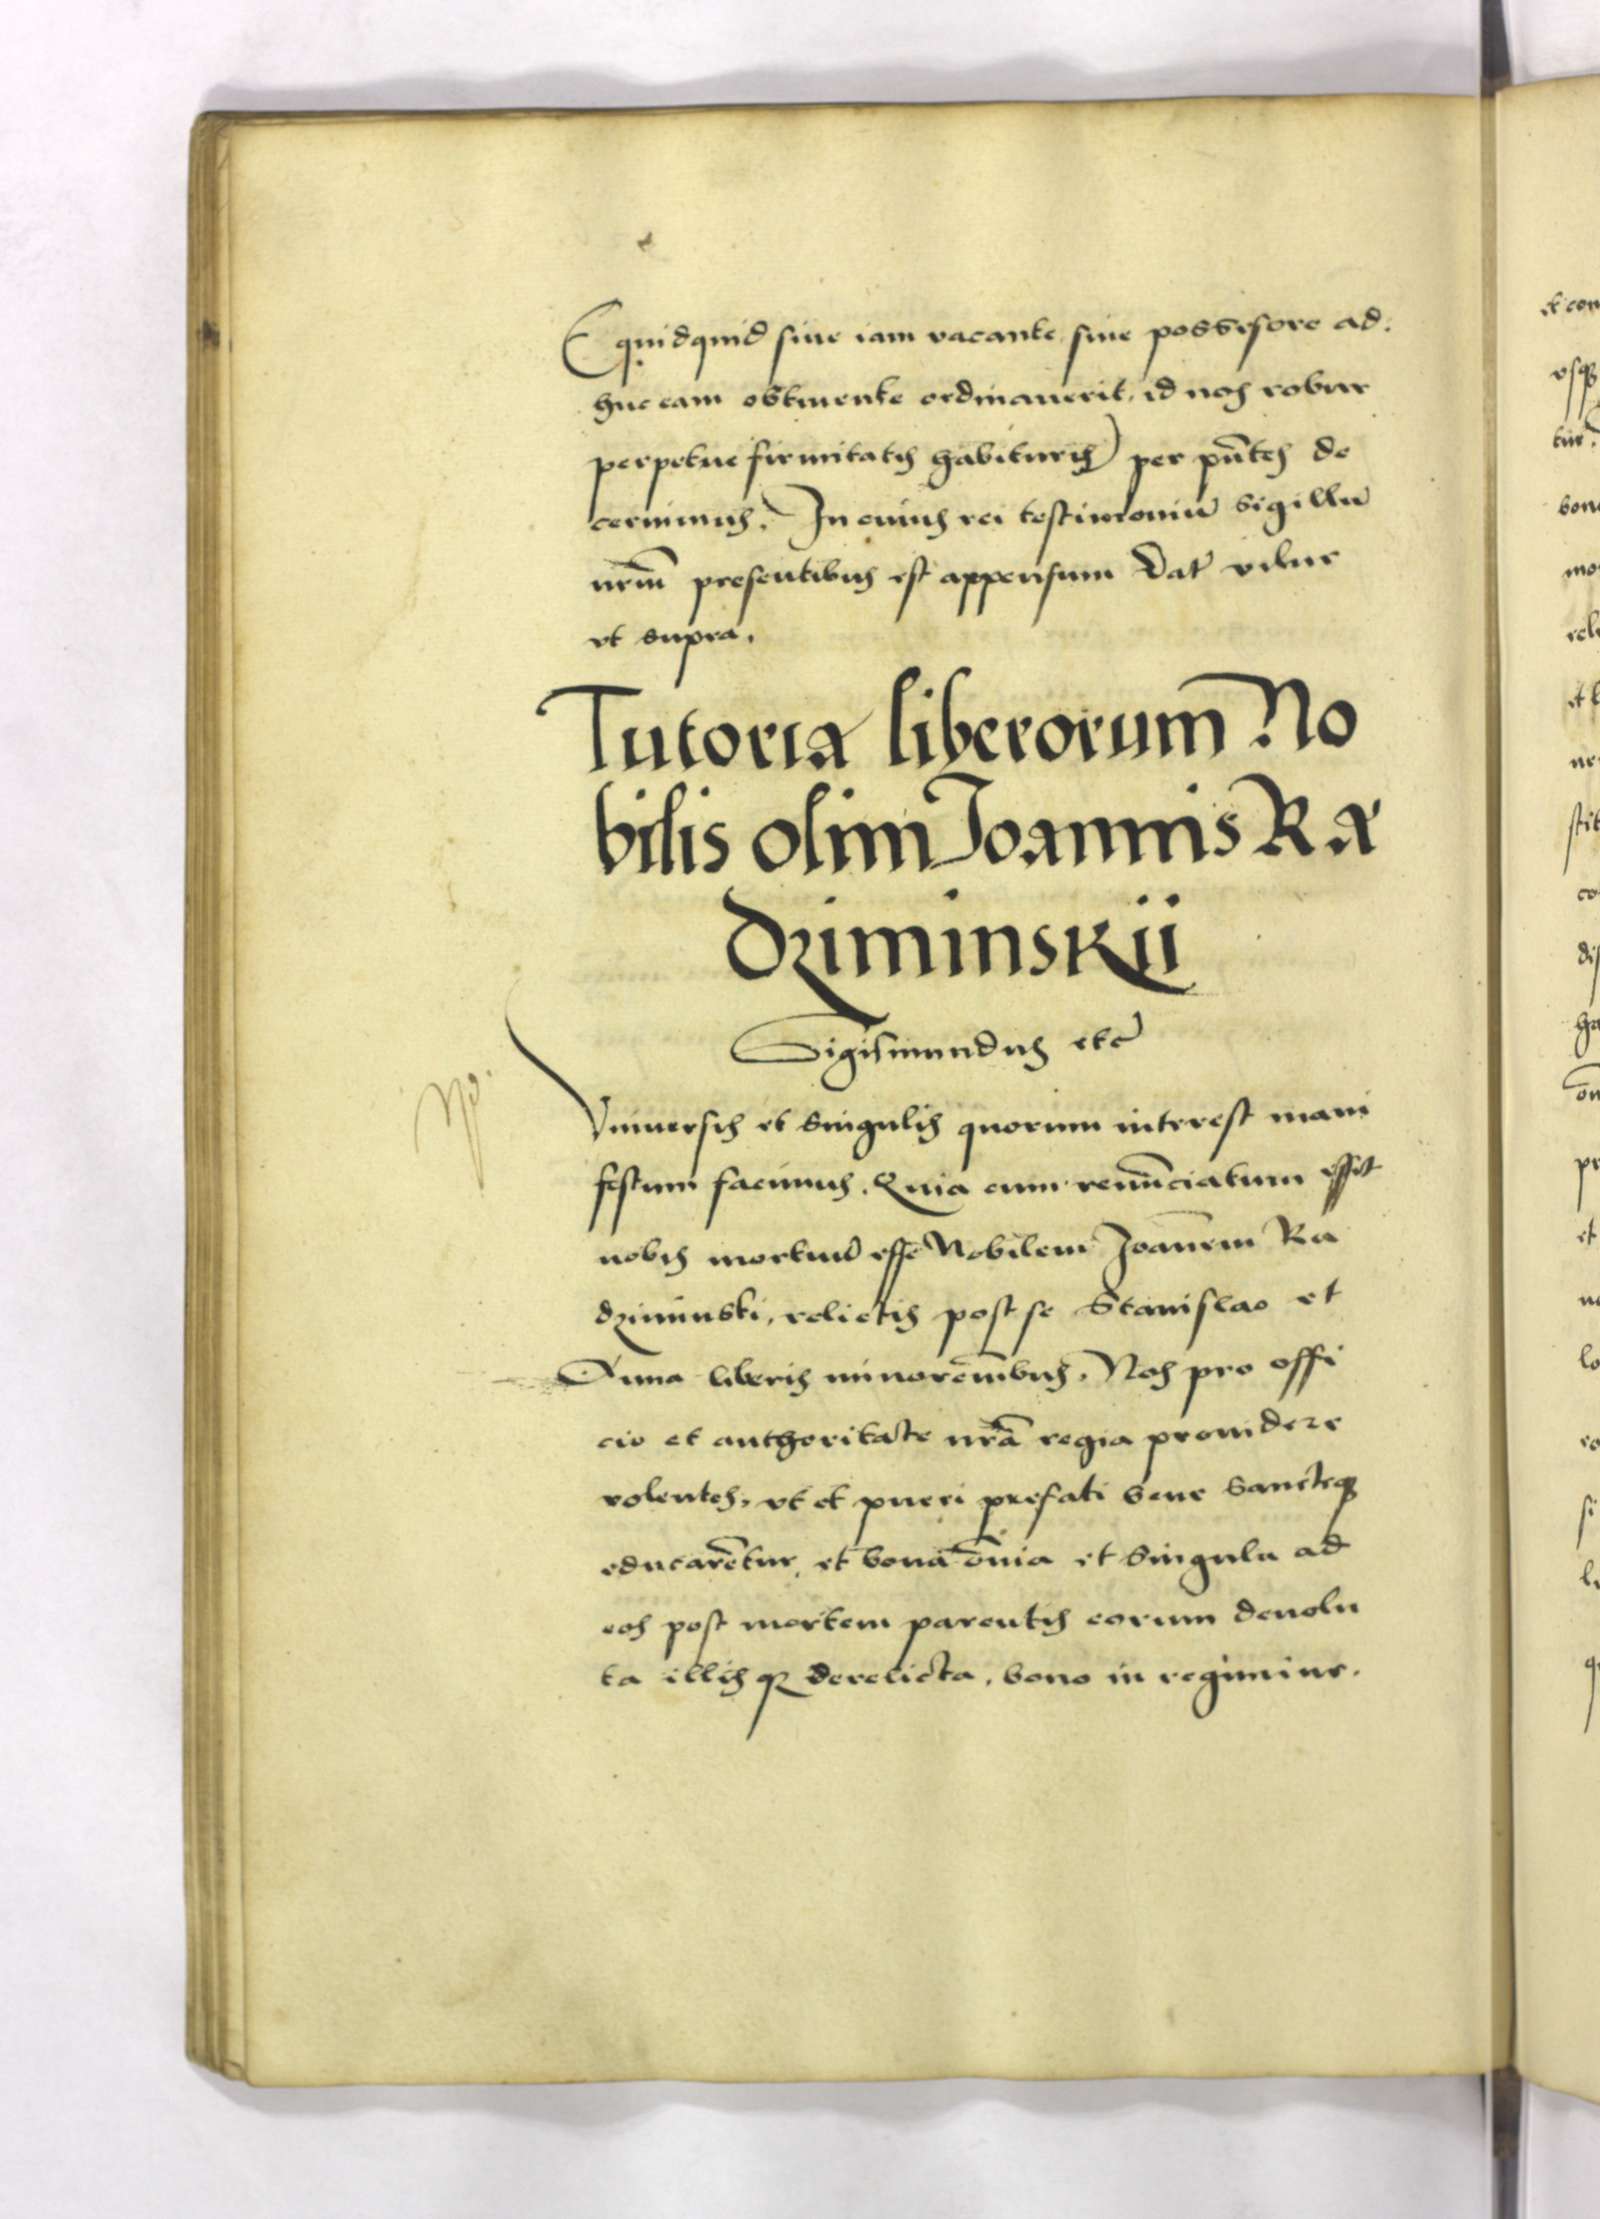 (quidquid siue iam vacante, siue possesore ad.
huc eam obtinente ordinauerit, id nos robur
perpetue firmitatis habituris) per pn̄tes de
cernimus. In cuius rei testimoniū sigillū
nrm̄ presentibus est appensum Dat̄ vilne
vt supra.
Tutoria liberorum No
bilis olim Joannis Ra
dziminskii
Sigismundus etc̄
Vniuersis et singulis quorum interest mani
festum facimus. Quia cum renūnciatum esset
nobis mortuū esse Nobilem Joān̄em Ra
dziminski, relictis post se Stanislao et
Anna liberis minorēnibus. Nos pro offi
cio et authoritate nrā regia prouidere
volentes, vt et pueri prefati bene sancteq
educarētur, et bona ōnia et singula ad
eos post mortem parentis eorum deuolu
ta illis q derelicta, bono in regimine.
et con
vsq
tur.
bon
mo
rel
et l
ne
stit
co
dis
ha
ōn
pr
et
lo
si